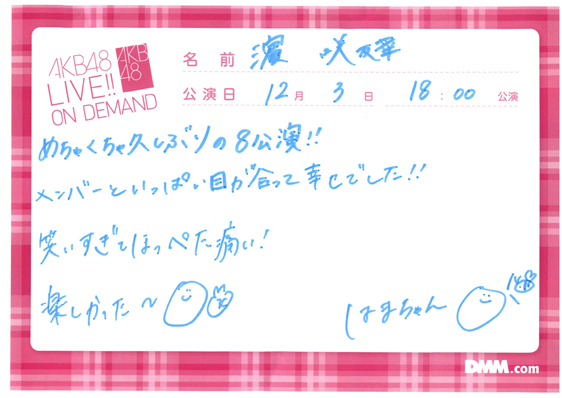 AKB48
LIVE!!
ON DEMAND
AKB
48
名前 濵 咲友菜
公演日 12月 3日 18:00 公演
めちゃくちゃ久しぶりの8公演!!
メンバーといっぱい目が合って幸せでした!!
笑いすぎてほっぺた痛い!
楽しかった～
はまちゃん
DMM.com